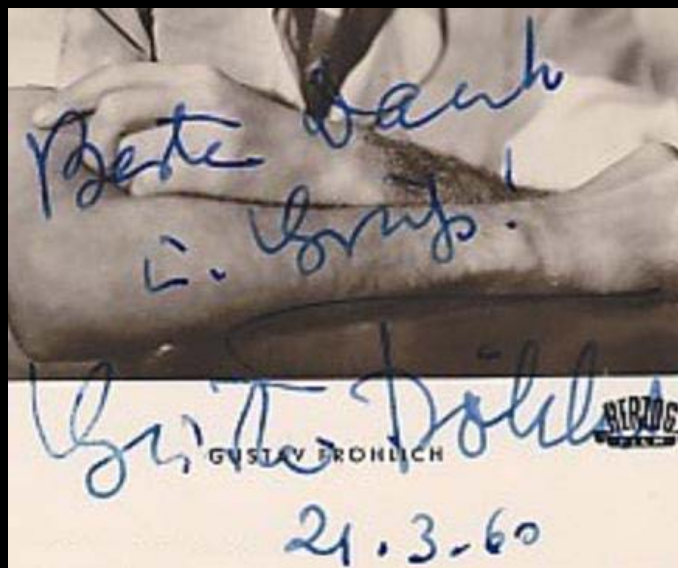 Besten Dank
u. Gruß!
Gustav Fröhlich
GUSTAV FRÖHLICH
HERZOG
21.3.60